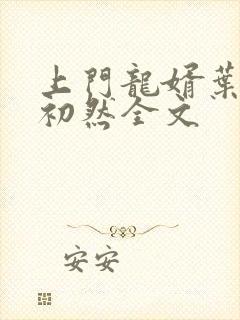 上門龍婿葉
初然全文
安安